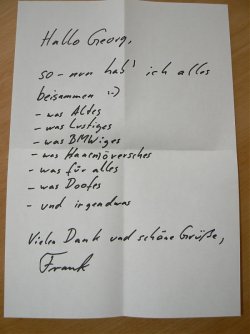 Hallo Georg,
so - nun hab' ich alles
beisammen :-)
- was Altes
- was Lustiges
- was BMWiges
- was Haarmjöversches
- was für alles
- was Doofes
- und irgendwas
Vielen Dank und schöne Grüße,
Frank